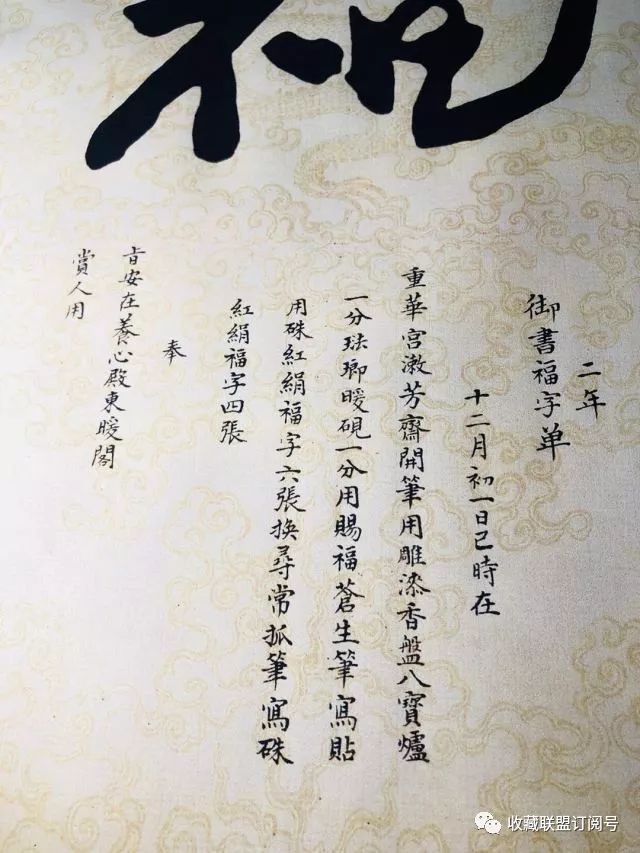 二年
御書福字单
十二月初一日巳時在
重華宮漱芳齋開筆用雕漆香盤八寶爐
一分珐瑯暖硯一分用賜福蒼生筆寫貼
用硃紅絹福字六張换尋常抓筆寫硃
紅絹福字四張
奉
旨安在養心殿東暖閣
賞人用
收藏联盟订阅号